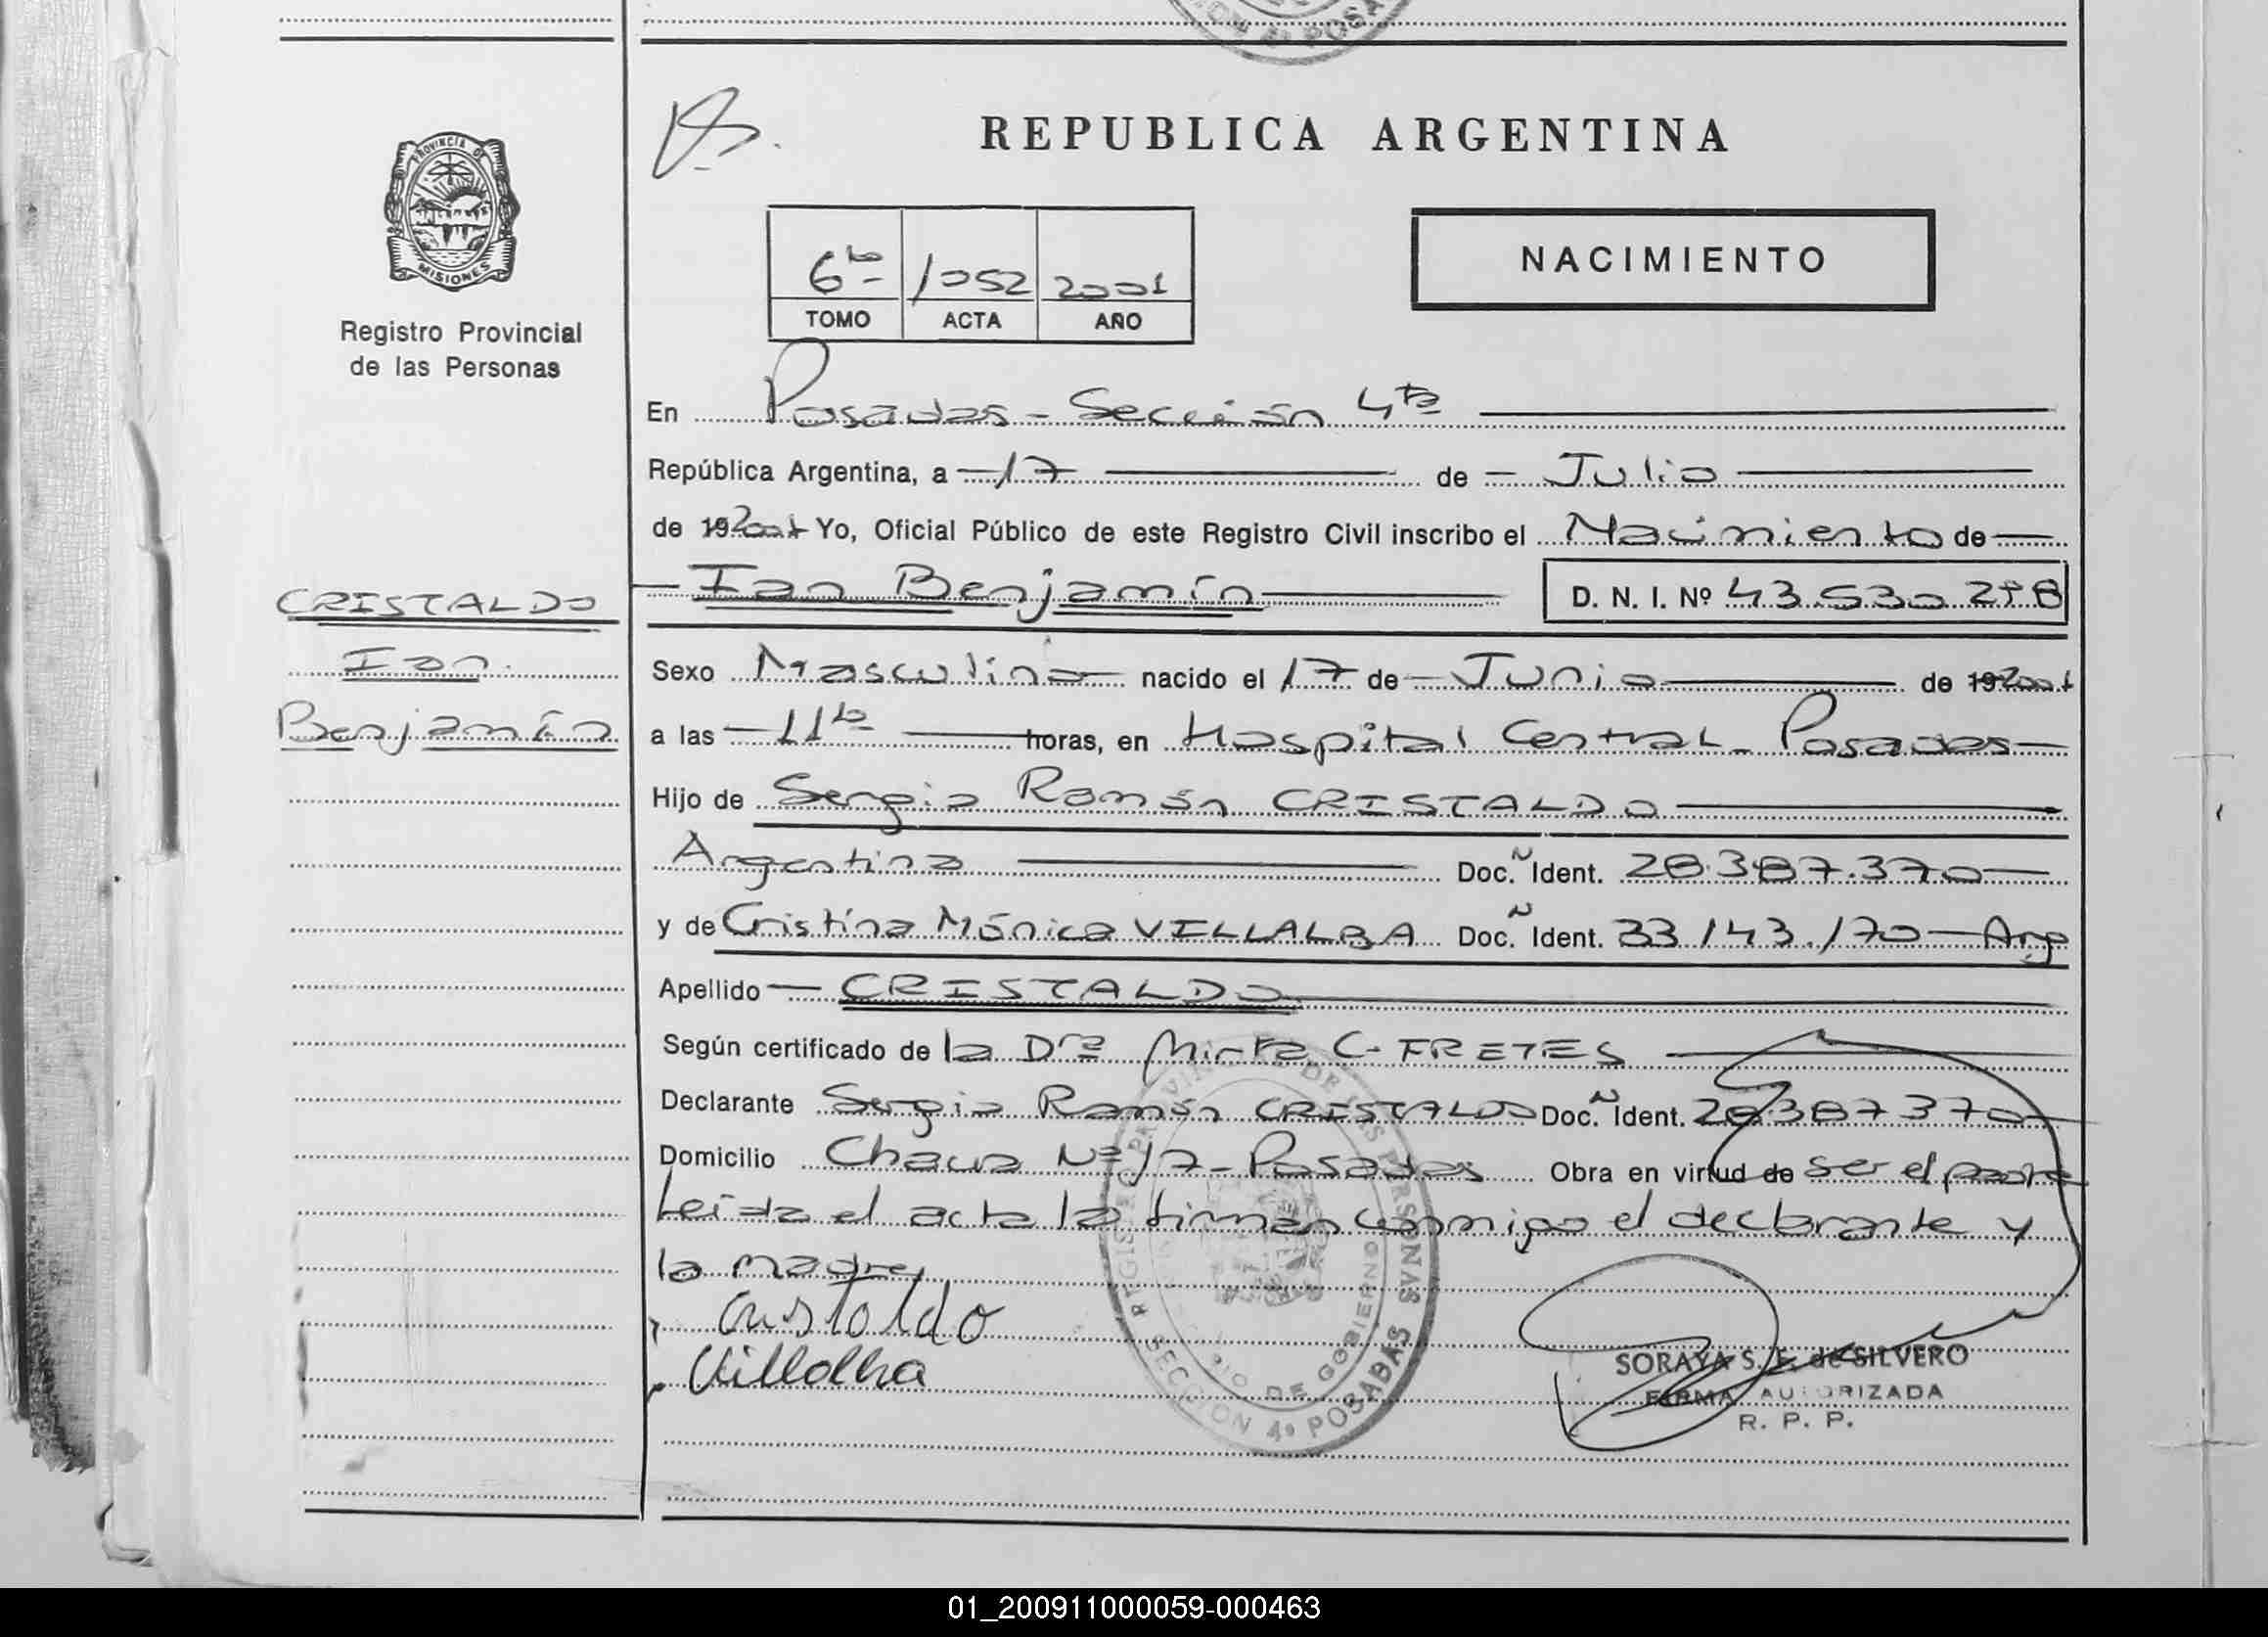 REPUBLICA ARGENTINA
PROVINCIA DE
MISIONES
Registro Provincial
de las Personas
6to TOMO
1052 ACTA
2001 AÑO
NACIMIENTO
En Posadas - Sección 4ta
República Argentina, a 17 de Julio
de 19 2001 Yo, Oficial Público de este Registro Civil inscribo el Nacimiento de
Ian Benjamín D. N. I. Nº 43.530.298
CRISTALDO
Ian
Benjamín
Sexo Masculino nacido el 17 de Junio de 19 2001
a las 11hs horas, en Hospital Central - Posadas
Hijo de Sergio Ramón CRISTALDO
Argentina Doc. Ident. 28.387.370
y de Cristina Mónica VILLALBA Doc. Ident. 33.143.170 - Arg
Apellido CRISTALDO
Según certificado de la Dra Mirta C. FRETES
Declarante Sergio Ramón CRISTALDO Doc. Ident. 28.387.370
Domicilio Chacra Nº 17 - Posadas Obra en virtud de ser el padre
Leída el acta la firman conmigo el declarante y
la madre
Cristaldo
Villalba
REGISTRO PROVINCIAL DE LAS PERSONAS
SECCION 4º POSADAS
DE GOBIERNO
SORAYA S. F. de SILVERO
FIRMA AUTORIZADA
R. P. P.
01_200911000059-000463